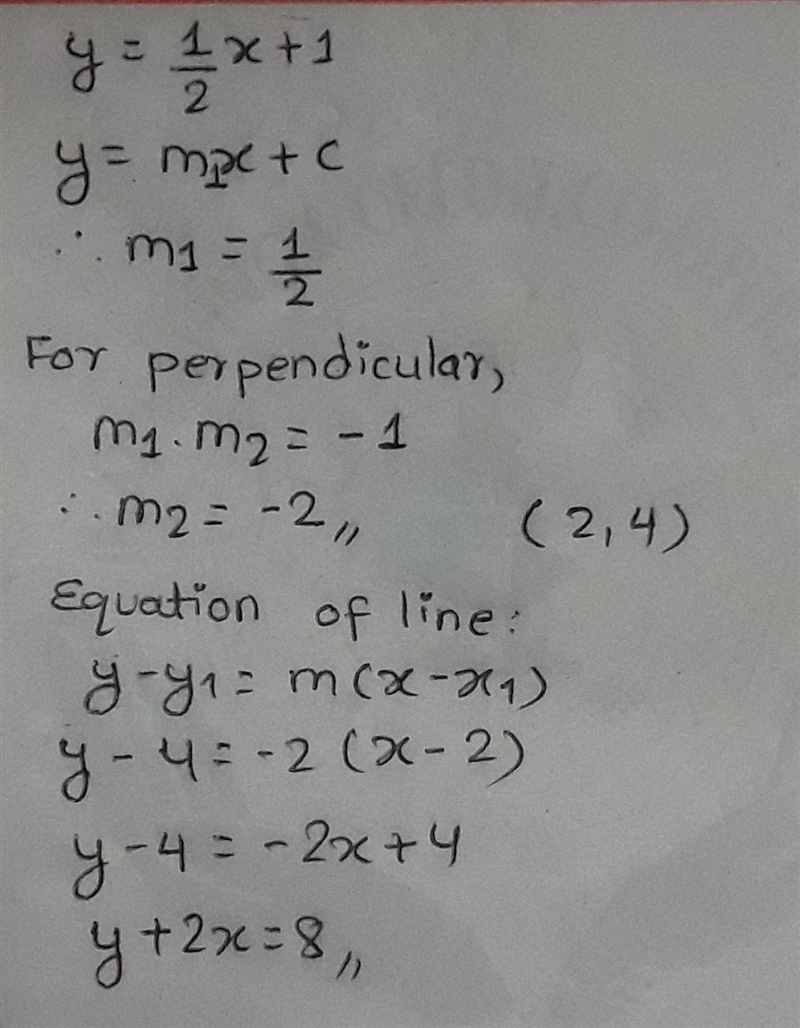 y = 1/2 x + 1
y = m1x + c
∴ m1 = 1/2
For perpendicular,
m1 . m2 = - 1
∴ m2 = -2,, (2,4)
Equation of line:
y - y1 = m(x - x1)
y - 4 = -2 (x - 2)
y - 4 = - 2x + 4
y + 2x = 8,,